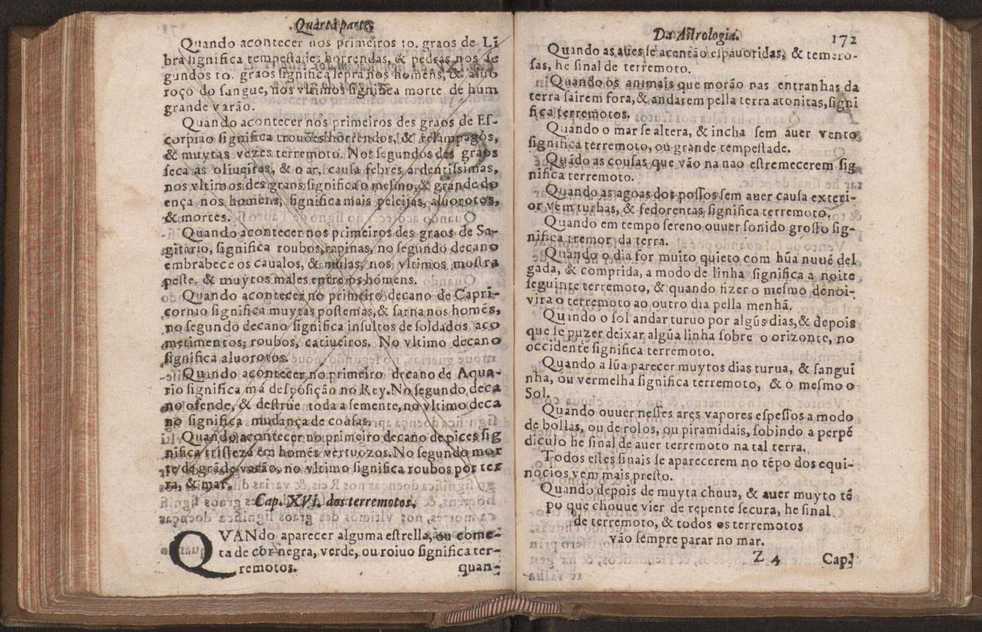 Quarta parte,
Quando acontecer nos primeiros 10. graos de Li
bra significa tempestades horrendas, & pedras nos se
gundos 10. graos significa lepra nos homẽs, & aluo
roço do sangue, nos vltimos significa morte de hum
grande varão.
Quando acontecer nos primeiros des graos de Es-
corpião significa trouões horrendos, & relampagos,
& muytas vezes terremoto. Nos segundos des graos
seca as oliueiras, & o ar, causa febres ardentissimas,
nos vltimos des graos significa o mesmo, & grande do
ença nos homẽs, significa mais peleijas, aluorotos,
& mortes.
Quando acontecer nos primeiros des graos de Sa-
gitario, significa roubos, rapinas, no segundo decano
embrabece os caualos, & mulas, nos vltimos mostra
peste, & muytos males entre os homens.
Quando acontecer no primeiro decano de Capri-
cornio significa muytas postemas, & sarna nos homẽs,
no segundo decano significa insultos de soldados, aco
metimentos, roubos, catiueiros. No vltimo decano
significa aluorotos.
Quando acontecer no primeiro decano de Aqua-
rio significa má desposição no Rey. No segundo deca
no ofende, & destrue toda a semente, no vltimo deca
no significa mudança de cousas.
Quando acontecer no primeiro decano de pices sig
nifica tristeza em homẽs vertuozos. No segundo mor
te de grãde varão, no vltimo significa roubos por ter
ra, & mar.
Cap. XVI. dos terremotos.
QVANdo aparecer alguma estrella, ou come-
ta de cor negra, verde, ou roiuo significa ter-
remotos.
quan-
Da Astrologia.
172
Quando as aues se acentão espauoridas, & temero-
sas, he sinal de terremoto.
Quando os animais que morão nas entranhas da
terra sairem fora, & andarem pella terra atonitas, signi
fica terremotos.
Quando o mar se altera, & incha sem auer vento
significa terremoto, ou grande tempestade.
Quãdo as cousas que vão na nao estremecerem sig
nifica terremoto.
Quando as agoas dos possos sem auer causa exteri-
or vem turbas, & fedorentas significa terremoto.
Quando em tempo sereno ouuer sonido grosso sig-
nifica tremor da terra.
Quando o dia for muito quieto com hũa nuuẽ del
gada, & comprida, a modo de linha significa a noite
seguinte terremoto, & quando fizer o mesmo denoi-
vira o terremoto ao outro dia pella menhã.
Quando o sol andar turuo por algũs dias, & depois
que se puzer deixar algũa linha sobre o orizonte, no
occidente significa terremoto.
Quando a lũa parecer muytos dias turua, & sangui
nha, ou vermelha significa terremoto, & o mesmo o
Sol.
Quando ouuer nestes ares vapores espessos a modo
de bollas, ou de rolos, ou piramidais, sobindo a perpẽ
diculo he sinal de auer terremoto na tal terra.
Todos estes sinais se aparecerem no tẽpo dos equi-
nocios vem mais presto.
Quando depois de muyta chuua, & auer muyto tẽ
po que chouue vier de repente secura, he sinal
de terremoto, & todos os terremotos
vão sempre parar no mar.
Z 4
Cap.